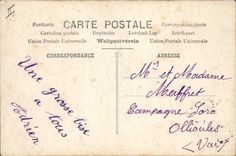 II
Postkarte
CARTE POSTALE
Correspondenzkarte
Cartolina postale
Dopisnice
Levelezö-Lap
Briefkaart
Union Postale Universelle
Weltpostverein
Union Postale Universelle
CORRESPONDANCE
ADRESSE
Une grosse bise
a tous
Adrien
Mr et Madame
Meiffret
Campagne Jora
Ollioules
(Var)